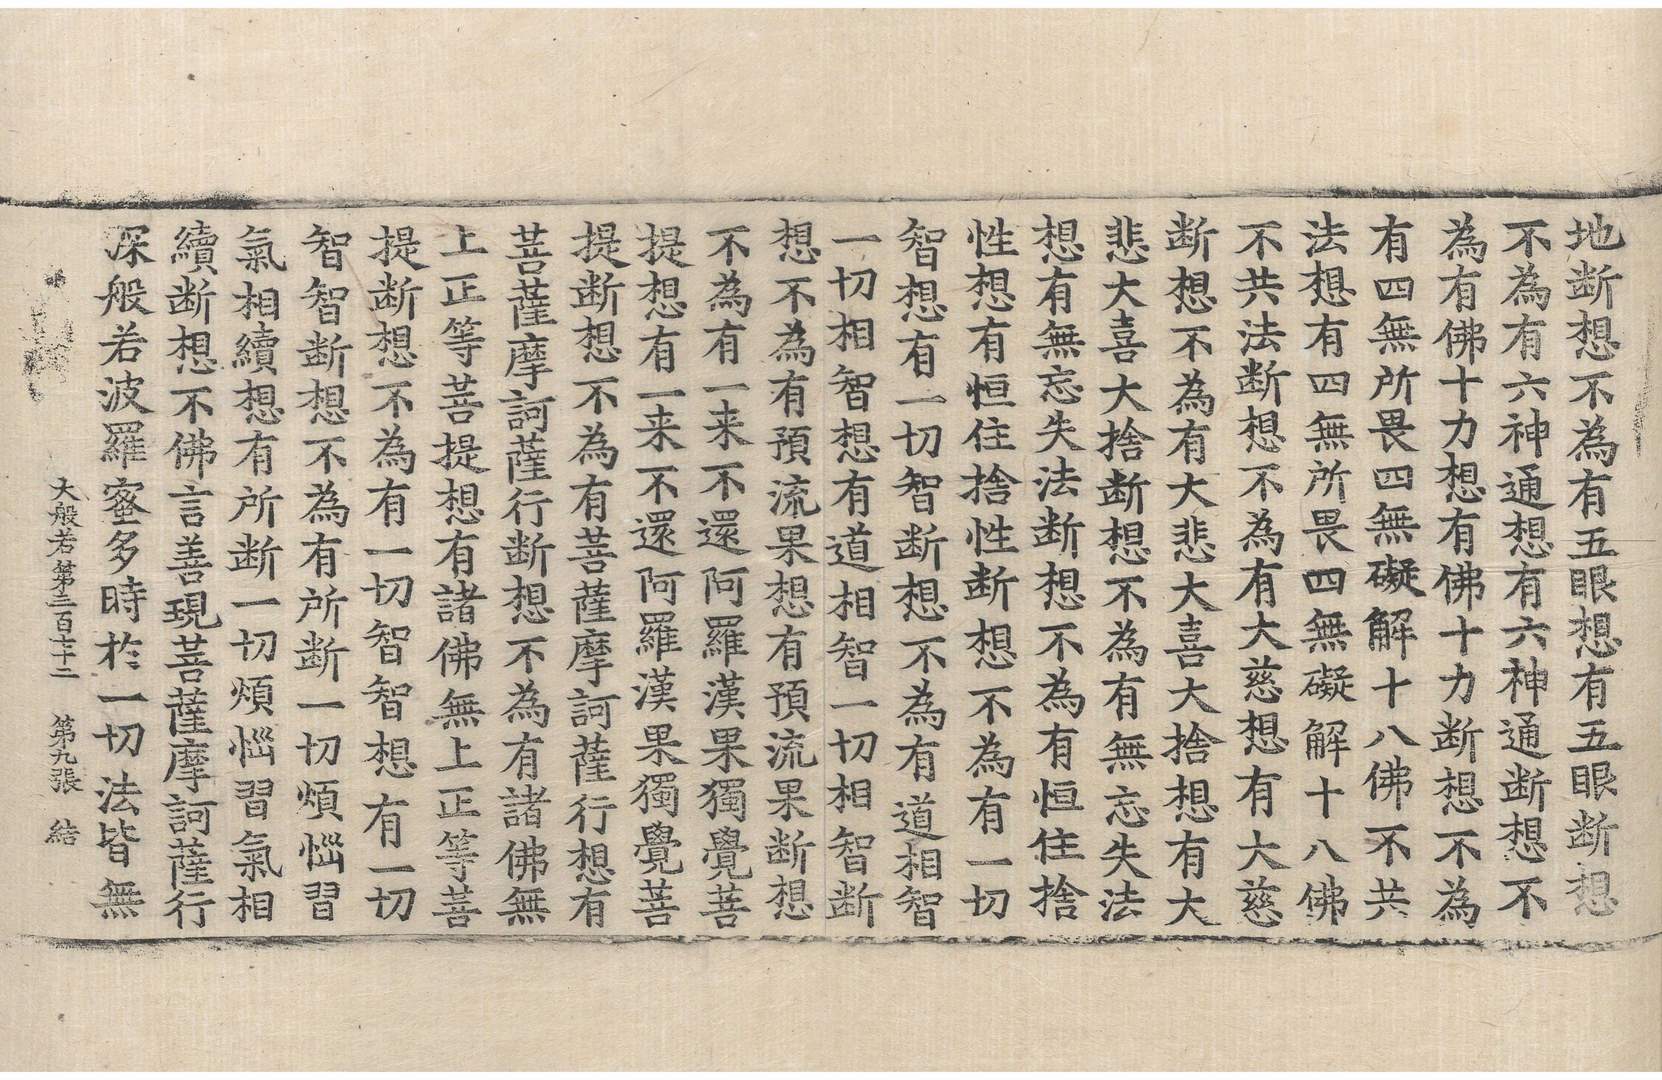 地断想不為有五眼想有五眼断想
不為有六神通想有六神通断想不
為有佛十力想有佛十力断想不為
有四無所畏四無礙解十八佛不共
法想有四無所畏四無礙解十八佛
不共法断想不為有大慈想有大慈
断想不為有大悲大喜大捨想有大
悲大喜大捨断想不為有無忘失法
想有無忘失法断想不為有恒住捨
性想有恒住捨性断想不為有一切
智想有一切智断想不為有道相智
一切相智想有道相智一切相智断
想不為有預流果想有預流果断想
不為有一来不還阿羅漢果獨覺菩
提想有一来不還阿羅漢果獨覺菩
提断想不為有菩薩摩訶薩行想有
菩薩摩訶薩行断想不為有諸佛無
上正等菩提想有諸佛無上正等菩
提断想不為有一切智智想有一切
智智断想不為有所断一切煩惱習
氣相續想有所断一切煩惱習氣相
續断想不佛言善現菩薩摩訶薩行
深般若波羅蜜多時於一切法皆無
大般若第三百七十二 第九張 結